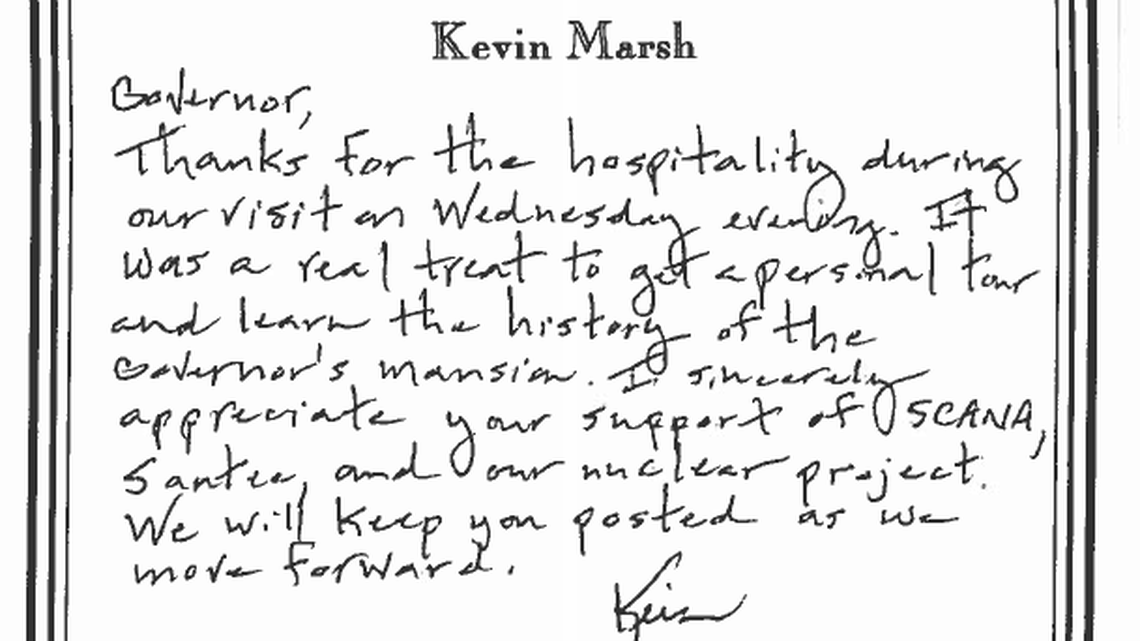 Kevin Marsh
Governor,
Thanks for the hospitality during
our visit on Wednesday evening. It
was a real treat to get a personal tour
and learn the history of the
Governor's mansion. I sincerely
appreciate your support of SCANA,
Santee, and our nuclear project.
We will keep you posted as we
move forward.
Kevin